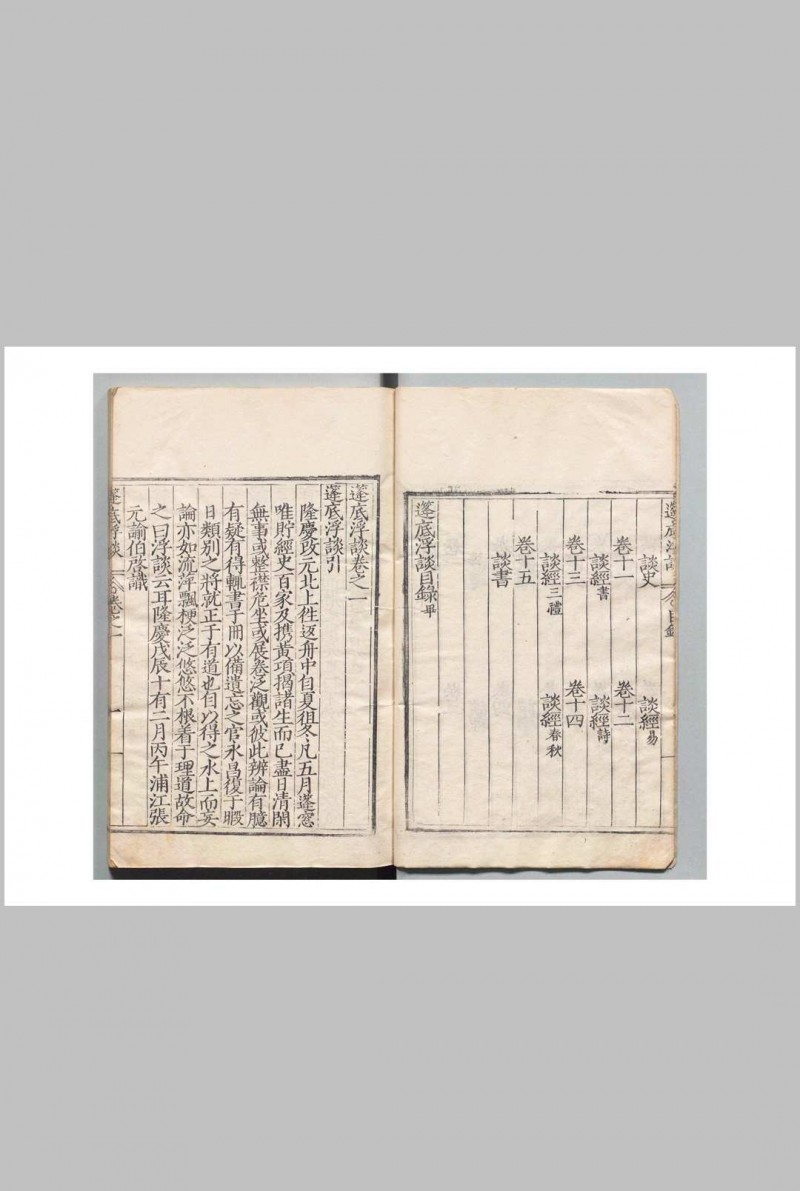 蓬底浮談 目錄
談史 談經易
卷十一 卷十二
談經書 談經詩
卷十三 卷十四
談經三禮 談經春秋
卷十五
談書
蓬底浮談目錄畢
蓬底浮談卷之一
蓬底浮談引
隆慶改元北上徃返舟中自夏徂冬凡五月蓬窓
唯貯經史百家及携黄項揭諸生而已盡日清閑
無事或整襟危坐或展卷泛觀或彼此辨論有臆
有疑有得輒書于冊以備遺忘之官永昌復于暇
日類別之將就正于有道也自以得之水上而妄
論亦如流萍飄梗泛泛悠悠不根着于理道故命
之曰浮談云耳隆慶戊辰十有二月丙午浦江張
元諭伯啓識
蓬底浮談 卷之一